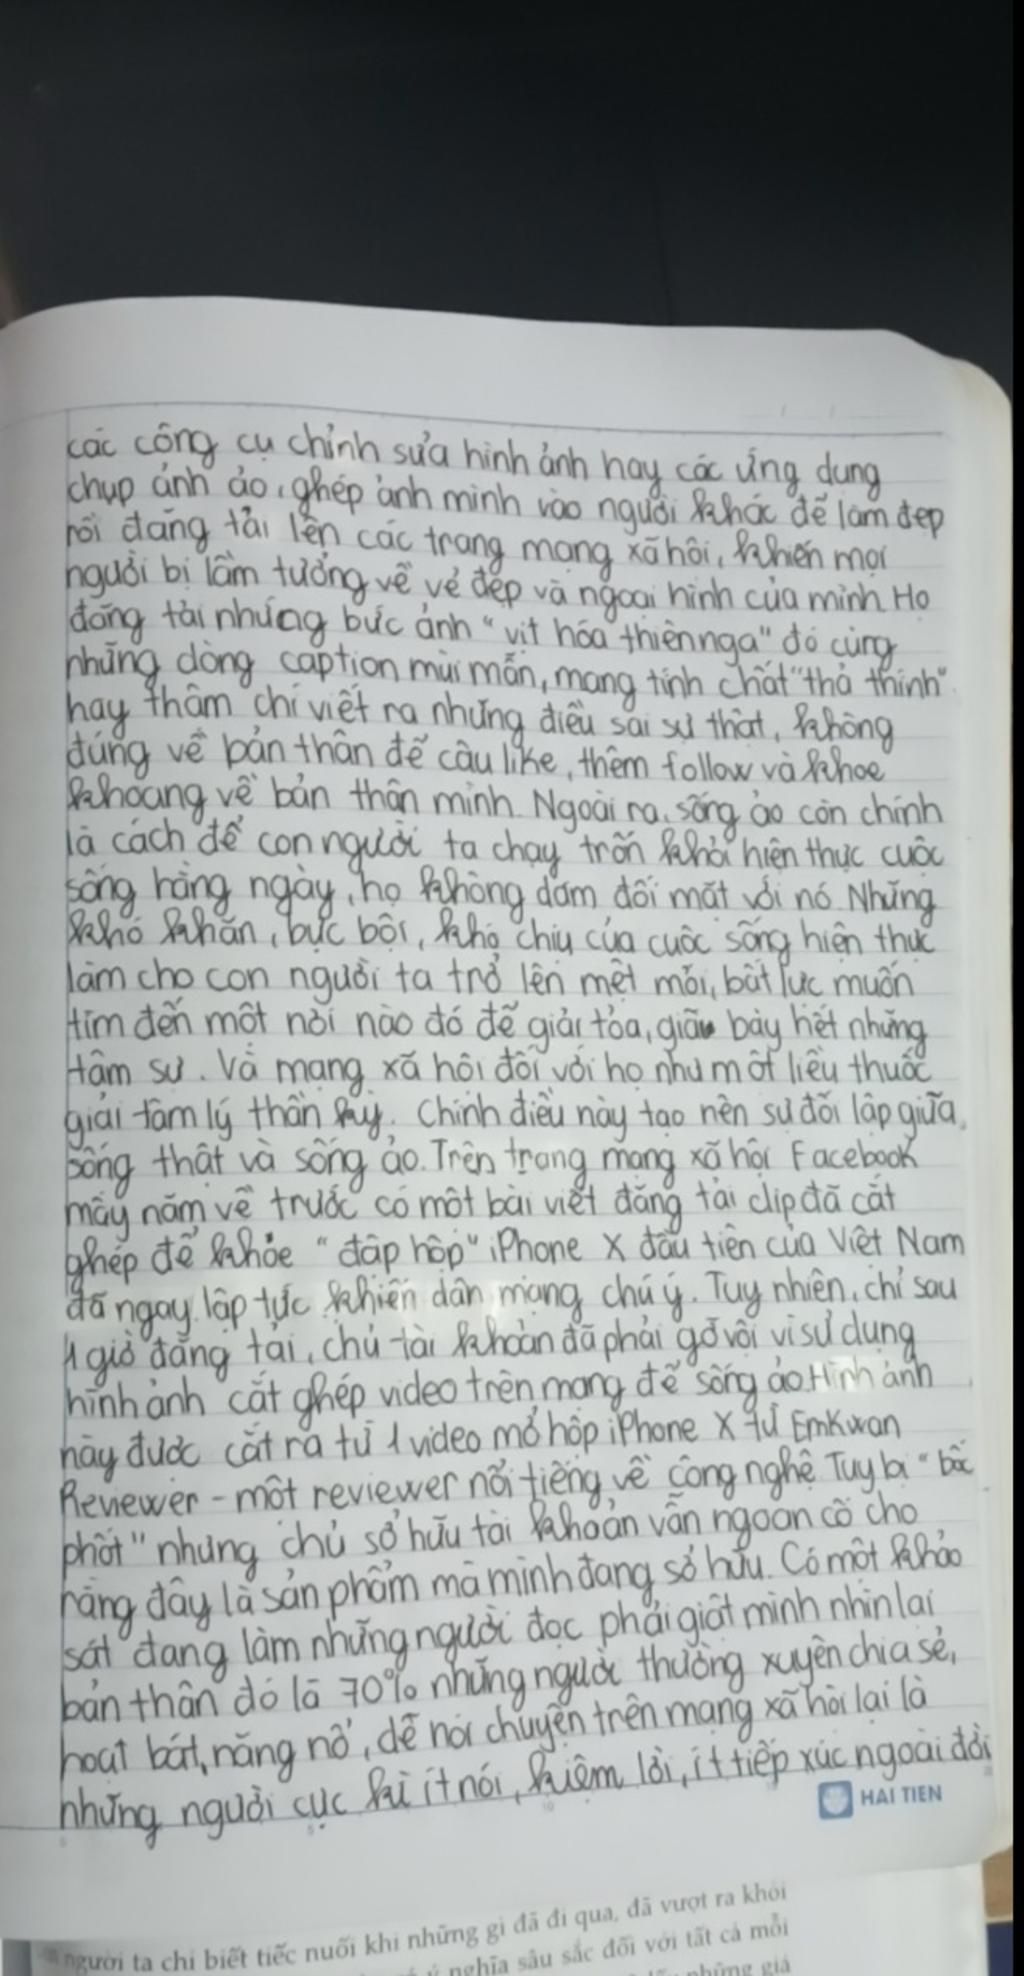 các công cụ chỉnh sửa hình ảnh hay các ứng dụng
chụp ảnh ảo, ghép ảnh mình vào người khác để làm đẹp
rồi đăng tải lên các trang mạng xã hội, khiến mọi
người bị lầm tưởng về vẻ đẹp và ngoại hình của mình. Họ
đăng tải những bức ảnh "vịt hóa thiên nga" đó cùng
những dòng caption mùi mẫn, mang tính chất "thả thính"
hay thậm chí viết ra những điều sai sự thật, không
đúng về bản thân để câu like, thêm follow và khoe
khoang về bản thân mình. Ngoài ra, sống ảo còn chính
là cách để con người ta chạy trốn khỏi hiện thực cuộc
sống hằng ngày, họ không dám đối mặt với nó. Những
khó khăn, bực bội, khó chịu của cuộc sống hiện thực
làm cho con người ta trở lên mệt mỏi, bất lực muốn
tìm đến một nơi nào đó để giải tỏa, giãi bày hết những
tâm sự. Và mạng xã hội đối với họ như một liều thuốc
giải tâm lý thần kỳ. Chính điều này tạo nên sự đối lập giữa
sống thật và sống ảo. Trên trang mạng xã hội Facebook
mấy năm về trước có một bài viết đăng tải clip đã cắt
ghép để khoe "đập hộp" iPhone X đầu tiên của Việt Nam
đã ngay lập tức khiến dân mạng chú ý. Tuy nhiên, chỉ sau
1 giờ đăng tải, chủ tài khoản đã phải gỡ vội vì sử dụng
hình ảnh cắt ghép video trên mạng để sống ảo. Hình ảnh
này được cắt ra từ 1 video mở hộp iPhone X từ EmKwan
Reviewer - một reviewer nổi tiếng về công nghệ. Tuy bị "bóc
phốt" nhưng chủ sở hữu tài khoản vẫn ngoan cố cho
rằng đây là sản phẩm mà mình đang sở hữu. Có một khảo
sát đang làm những người đọc phải giật mình nhìn lại
bản thân đó là 70% những người thường xuyên chia sẻ,
hoạt bát, năng nổ, dễ nói chuyện trên mạng xã hội lại là
những người cực kì ít nói, kiệm lời, ít tiếp xúc ngoài đời
HẢI TIẾN
người ta chỉ biết tiếc nuối khi những gì đã đi qua, đã vượt ra khỏi
ý nghĩa sâu sắc đối với tất cả mỗi
những giá